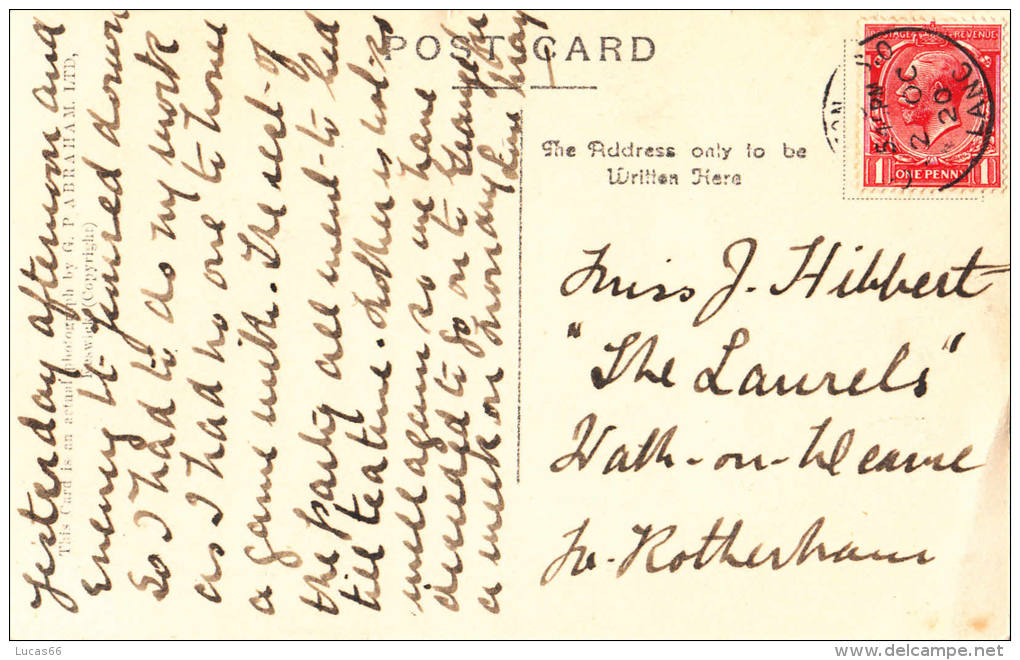 POST CARD
The Address only to be
Written Here
POSTAGE REVENUE
1 ONE PENNY 1
5 15 PM
2 OC
20
LANC
Miss J. Hibbert
"The Laurels"
Wath-on-Dearne
Nr. Rotherham
This Card is an actual photograph by G. P. ABRAHAM, LTD,
Keswick (Copyright)
yesterday afternoon and
evening it poured down
So I had to do my work
as I had no one to have
a game with. The rest of
the party all went to bed
till teatime. Mother is not
well again so we have
decided to go on to
a week on Monday
Lucas66
delcampe.net